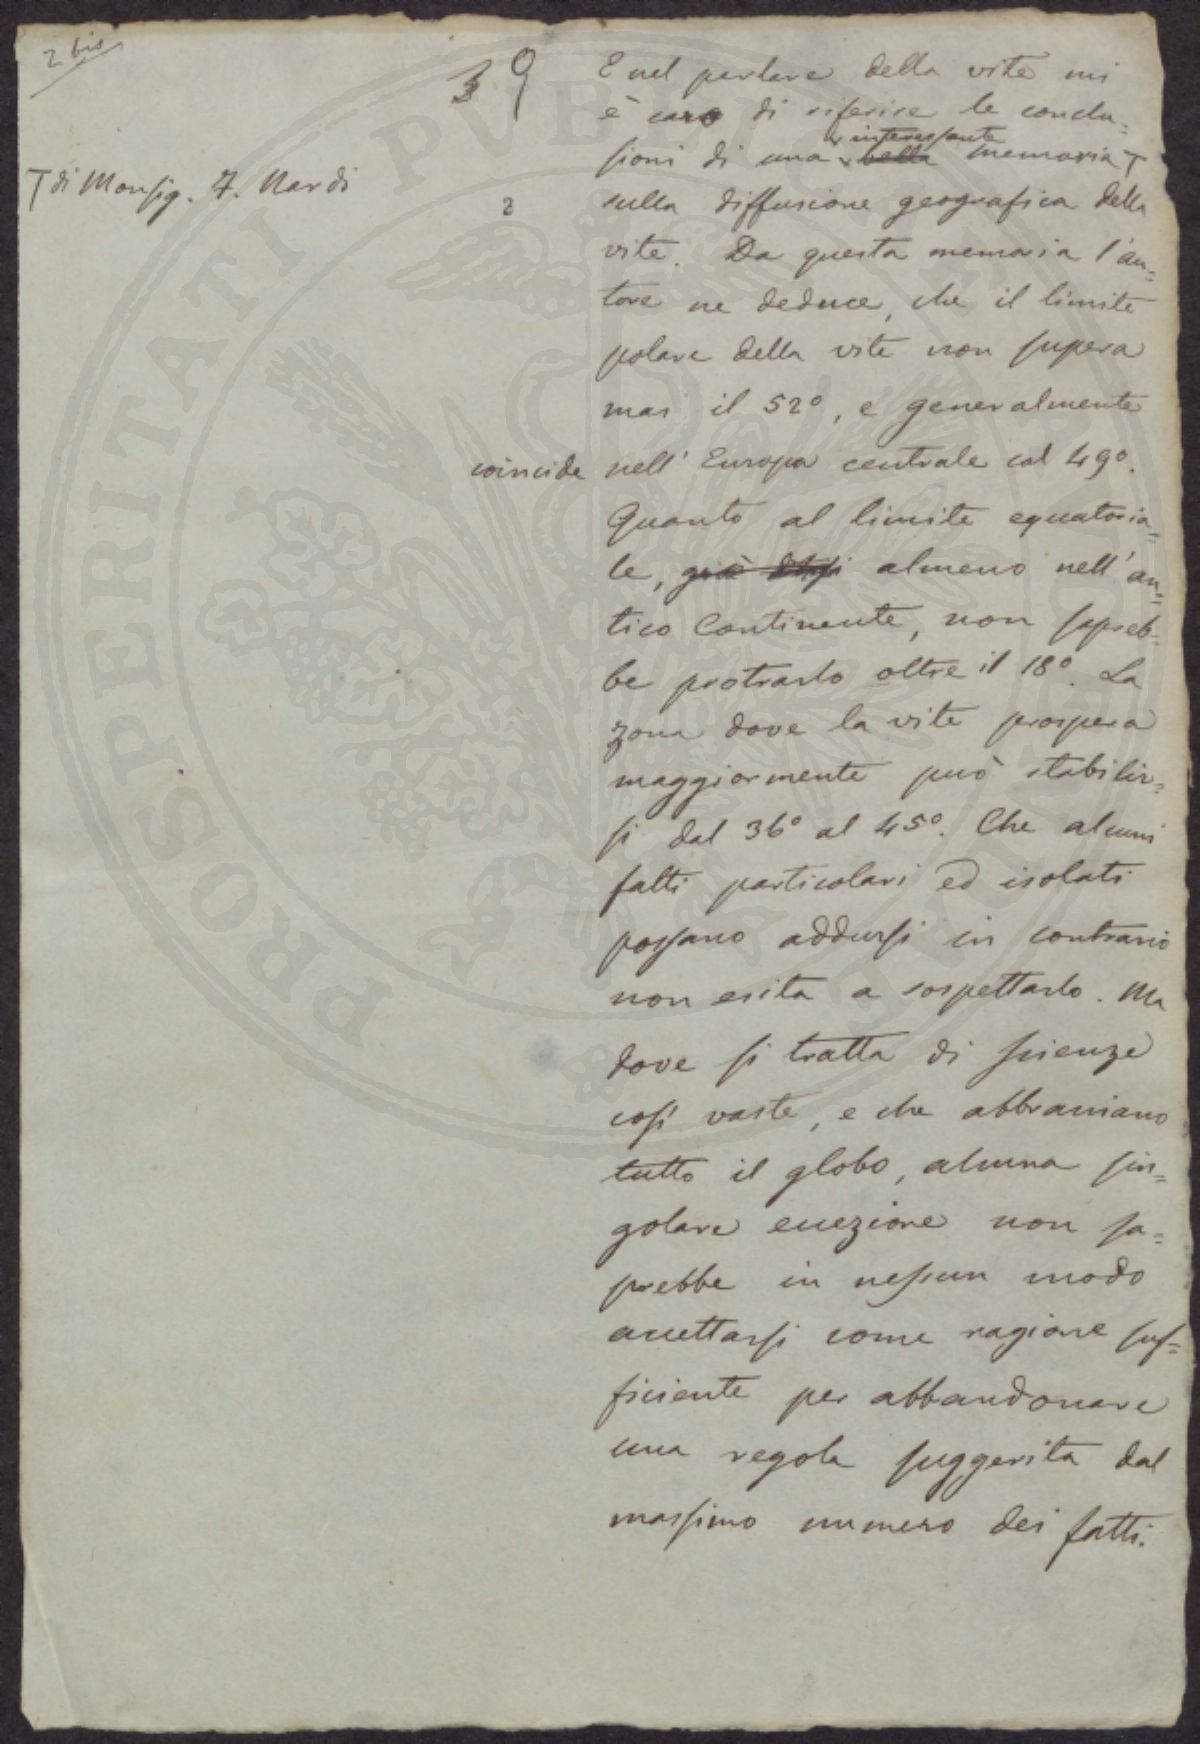 2 bis
3 9
E nel parlare della vite mi
è caro di riferire le conclu=
interessante
sioni di una bella memoria T
T di Monsig. F. Nardi
2
sulla diffusione geografica della
vite. Da questa memoria l'au=
tore ne deduce, che il limite
polare della vite non supera
mai il 52°, e generalmente
coincide nell' Europa centrale col 49°.
Quanto al limite equatoria=
le, almeno nell' an=
tico Continente, non sapreb=
be protrarlo oltre il 18°. La
zona dove la vite prospera
maggiormente può stabilir=
si dal 36° al 45°. Che alcuni
fatti particolari ed isolati
possano addursi in contrario
non esita a sospettarlo. Ma
dove si tratta di scienze
così vaste, e che abbracciano
tutto il globo, alcuna sin=
golare eccezione non sa=
prebbe in nessun modo
accettarsi come ragione suf=
ficiente per abbandonare
una regola suggerita dal
massimo numero dei fatti.
PROSPERITATI PUBLI